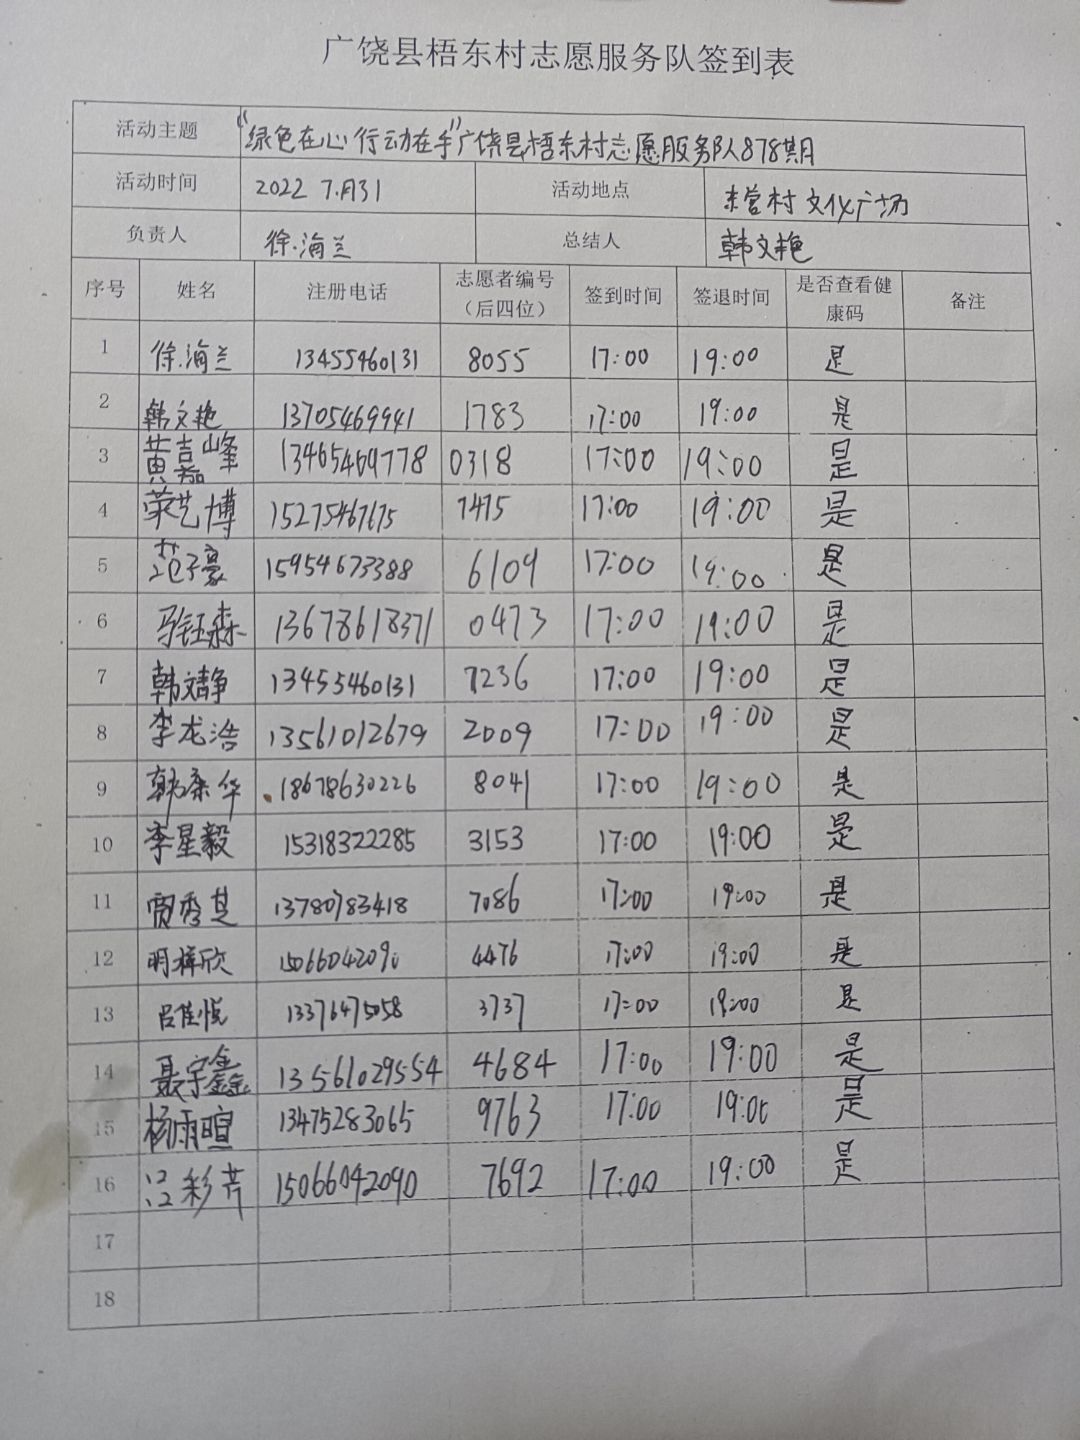 广饶县梧东村志愿服务队签到表
活动主题 “绿色在心 行动在手”广饶县梧东村志愿服务队878期
活动时间 2022 7.月31 活动地点 东营村 文化广场
负责人 徐海兰 总结人 韩文艳
序号 姓名 注册电话 志愿者编号（后四位） 签到时间 签退时间 是否查看健康码 备注
1 徐海兰 13455460131 8055 17:00 19:00 是
2 韩文艳 13705469941 1783 17:00 19:00 是
3 黄嘉峰 13465469778 0318 17:00 19:00 是
4 荣艺博 15275467675 7475 17:00 19:00 是
5 范子豪 15954673388 6109 17:00 19:00 是
6 马钰森 13678618371 0473 17:00 19:00 是
7 韩文静 13455460131 7236 17:00 19:00 是
8 李龙浩 13561012679 2009 17:00 19:00 是
9 韩秦华 18678630226 8041 17:00 19:00 是
10 李星毅 15318322285 3153 17:00 19:00 是
11 贾秀芝 13780783418 7086 17:00 19:00 是
12 明梓欣 15066042090 4476 17:00 19:00 是
13 吕佳悦 13376475058 3737 17:00 19:00 是
14 聂宇鑫 13561029554 4684 17:00 19:00 是
15 杨雨暄 13475283065 9763 17:00 19:00 是
16 彩芹 15066042090 7692 17:00 19:00 是
17
18